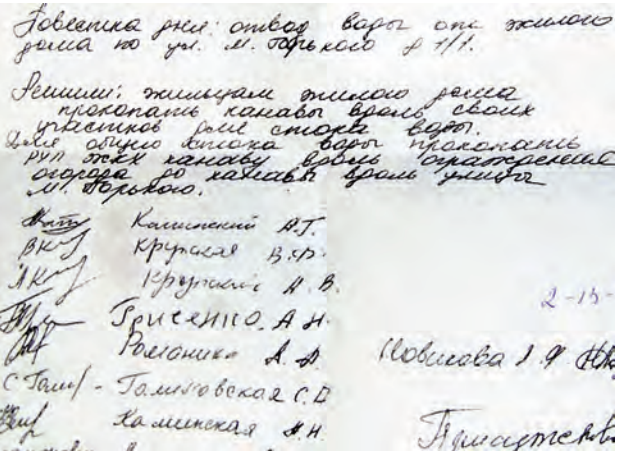 Повестка дня: отвод воды от жилого
дома по ул. М. Горького д 1/1.
Решили: жильцам жилого дома
прокопать канавы вдоль своих
участков для стока воды.
Для общего стока воды прокопать
РУП ЖКХ канаву вдоль ограждения
огорода до канавы вдоль улицы
М. Горького.
Калинский А.Г.
ВКу Крупская В.
АКу Крупский А. В.
Грисенко А Н.
Романика А. А.
2-15-
Новикова Л. Ф
С Гами - Гамиловская С. В
Калинская Н.Н.